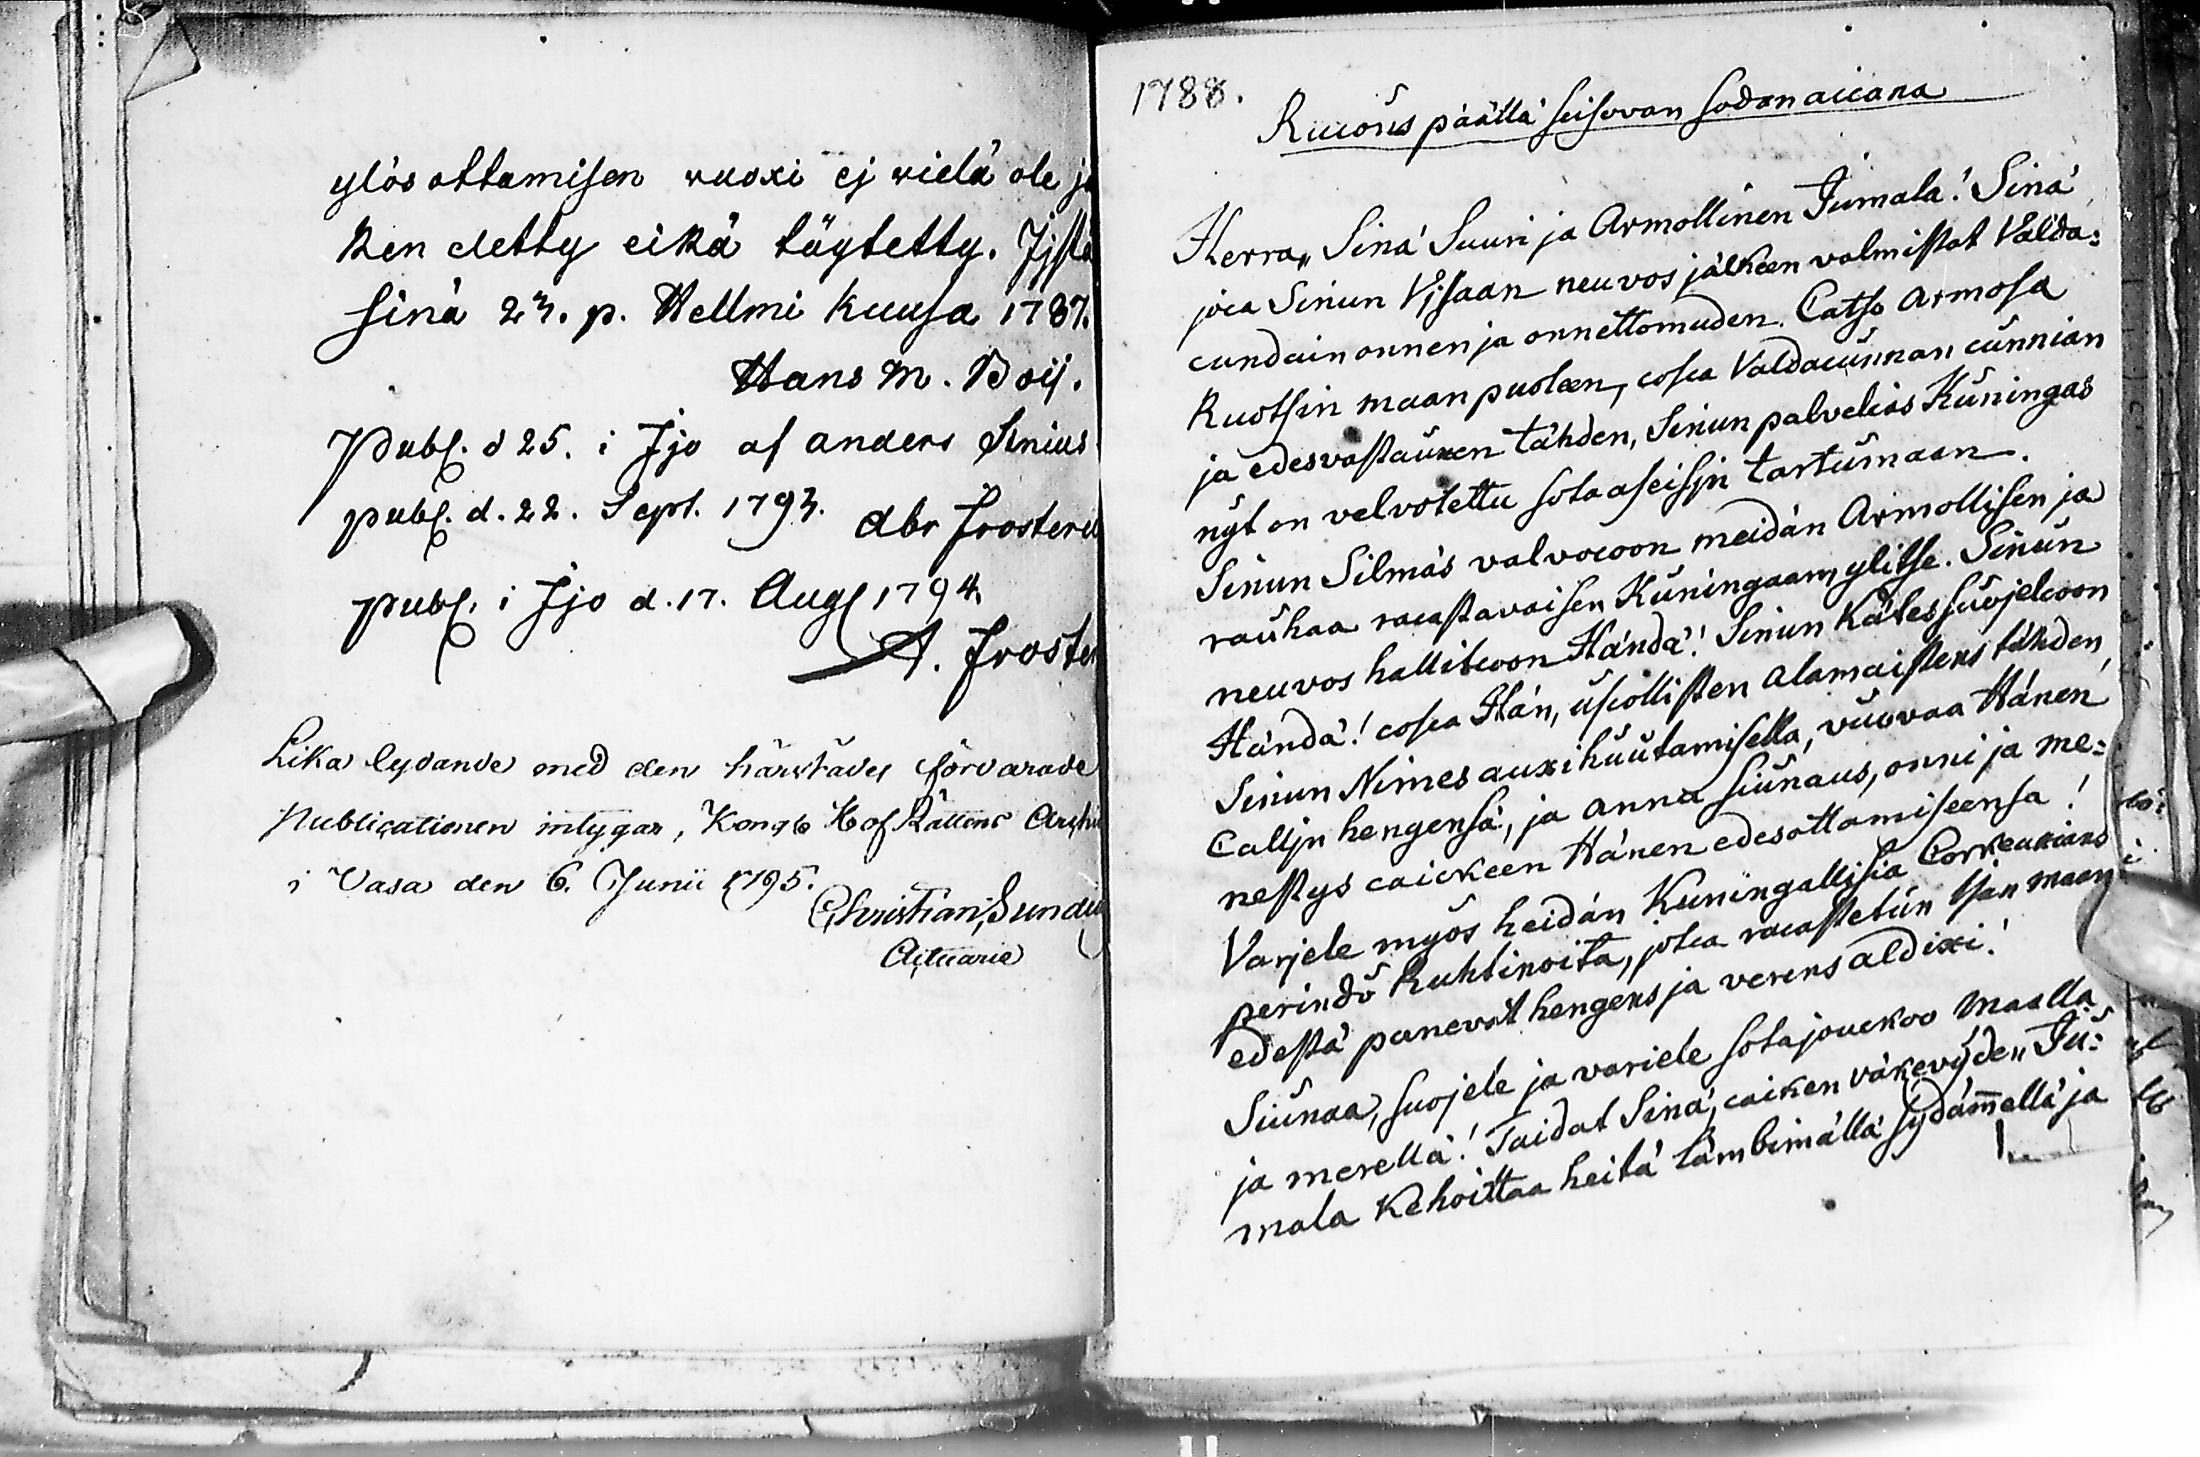 ylös ottamisen vuoxi ej vielä ole
ken detty eikä täytetty. Ijsä
sinä 23. p. Hellmi kuusa 1787.
Hans M. Boij.
Publ. d 25. i Ijo af anders Simius
publ. d. 22. Sept. 1793. Abr Froster
publ. i Ijo d. 17. Aug 1794.
A. Froste
Lika lydande med den härstädes förvarade
Publicationen intygar, Kongl Hof Rättens
i Vasa den 6. Junii 1795.
Christian Sund
Actuarie
1788.
Rucous päällä seisovan sodan aicana
Herra, Sinä Suuri ja Armollinen Jumala! Sinä
joca Sinun Vjsaan neuvos jälkeen valmistat Valda-
cundain onnen ja onnettomuden. Catso armosa
Ruotsin maan puoleen, cosca Valdacunnan cunnian
ja edesvastauxen tähden, Sinun palvelias Kuningas
nyt on velvotettu sota aseisjn tartumaan.
Sinun Silmäs valvocoon meidän Armollisen ja
rauhaa racastavaisen Kuningaam ylitse. Sinun
neuvos hallitcoon Händä! Sinun Kätes suojelcoon
Händä! cosca Hän, uscollisten alamaistens tähden,
Sinun Nimes auxihuutamisella, vuovaa Hänen
Calljn hengensä, ja anna siunaus, onni ja me-
nestys caickeen Hänen edesottamiseensa!
Varjele myös heidän Kuningallisia Corkeuxians
perindö Ruhtinoita, jotca racastetun Isän maan
edestä panevat hengens ja verens aldixi!
Siunaa, suojele ja variele sotajouckoo maalla
ja merellä! Taidat Sinä, caicken väkevyden Ju-
mala Kehoittaa heitä lämbimällä sydämellä ja